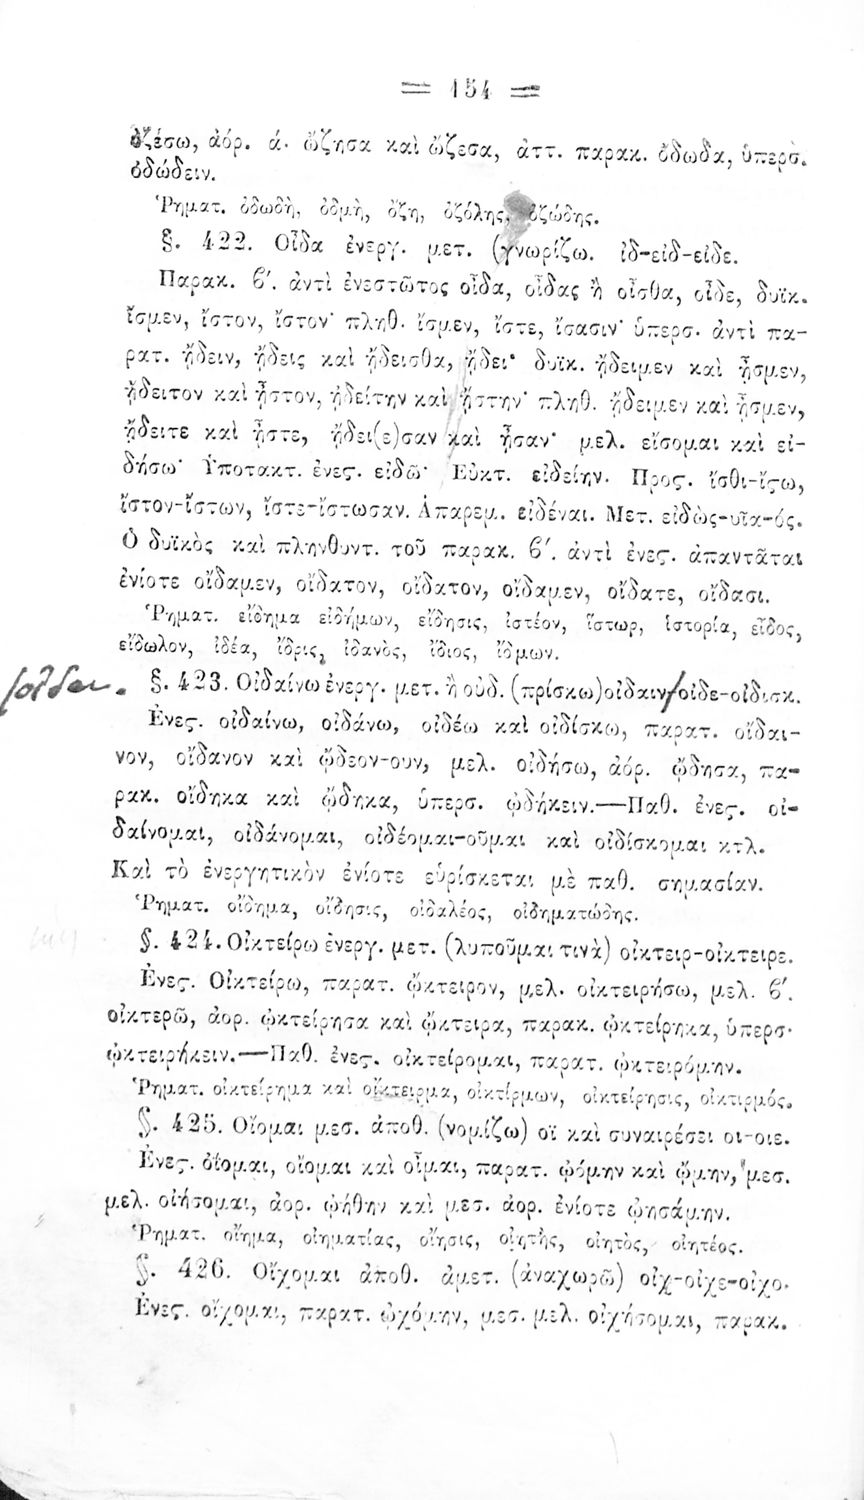 = 154 =
ὀζέσω, ἀόρ. ά. ὤζησα καὶ ὤζεσα, ἀττ. παρακ. ὄδωδα, ὑπερσ.
ὀδώδειν.
Ῥηματ. ὀδωδὴ, ὀδμὴ, ὄζη, ὀζόλης, ὀζώδης.
§. 422. Οἶδα ἐνεργ. μετ. (γνωρίζω. ἰδ-εἰδ-εἰδε.
Παρακ. β΄. ἀντὶ ἐνεστῶτος οἶδα, οἶδας ἢ οἶσθα, οἶδε, δυϊκ.
ἴσμεν, ἴστον, ἴστον· πληθ. ἴσμεν, ἴστε, ἴσασιν· ὑπερσ. ἀντὶ πα-
ρατ. ᾔδειν, ᾔδεις καὶ ᾔδεισθα, ᾔδει· δυϊκ. ᾔδειμεν καὶ ᾖσμεν,
ᾔδειτον καὶ ᾖστον, ᾐδείτην καὶ ᾔστην· πληθ. ᾔδειμεν καὶ ᾖσμεν,
ᾔδειτε καὶ ᾖστε, ᾔδει(ε)σαν καὶ ᾖσαν· μελ. εἴσομαι καὶ εἰ-
δήσω· Ὑποτακτ. ἐνεϛ. εἰδῶ· Εὐκτ. εἰδείην. Προϛ. ἴσθι-ἴϛω,
ἴστον-ἴστων, ἴστε-ἴστωσαν. Ἀπαρεμ. εἰδέναι. Μετ. εἰδὼς-υῖα-ός.
Ὁ δυϊκὸς καὶ πληνθυντ. τοῦ παρακ. β΄. ἀντὶ ἐνεϛ. ἀπαντᾶται
ἐνίοτε οἴδαμεν, οἴδατον, οἴδατον, οἴδαμεν, οἴδατε, οἴδασι.
Ῥηματ. εἴδημα εἰδήμων, εἴδησις, ἰστέον, ἵστωρ, ἱστορία, εἶδος,
εἴδωλον, ἰδέα, ἴδρις, ἰδανὸς, ἴδιος, ἴδμων.
§. 423. Οἰδαίνω ἐνεργ. μετ. ἢ οὐδ. (πρίσκω) οἰδαιν/οἰδε-οἰδισκ.
Ἐνεϛ. οἰδαίνω, οἰδάνω, οἰδέω καὶ οἰδίσκω, παρατ. οἴδαι-
νον, οἴδανον καὶ ᾤδεον-ουν, μελ. οἰδήσω, ἀόρ. ᾤδησα, πα-
ρακ. οἴδηκα καὶ ᾤδηκα, ὑπερσ. ᾠδήκειν.—Παθ. ἐνεϛ. οἰ-
δαίνομαι, οἰδάνομαι, οἰδέομαι-οῦμαι καὶ οἰδίσκομαι κτλ.
Καὶ τὸ ἐνεργητικὸν ἐνίοτε εὑρίσκεται μὲ παθ. σημασίαν.
Ῥηματ. οἴδημα, οἴδησις, οἰδαλέος, οἰδηματώδης.
§. 424. Οἰκτείρω ἐνεργ. μετ. (λυποῦμαι τινὰ) οἰκτειρ-οἰκτειρε.
Ἐνεϛ. Οἰκτείρω, παρατ. ᾤκτειρον, μελ. οἰκτειρήσω, μελ. β΄.
οἰκτερῶ, ἀορ. ᾠκτείρησα καὶ ᾤκτειρα, παρακ. ᾠκτείρηκα, ὑπερσ.
ᾠκτειρήκειν.—Παθ. ἐνεϛ. οἰκτείρομαι, παρατ. ᾠκτειρόμην.
Ῥηματ. οἰκτείρημα καὶ οἴκτειρμα, οἰκτίρμων, οἰκτείρησις, οἰκτιρμός.
§. 425. Οἴομαι μεσ. ἀποθ. (νομίζω) οϊ καὶ συναιρέσει οι-οιε.
Ἐνεϛ. ὀΐομαι, οἴομαι καὶ οἶμαι, παρατ. ᾠόμην καὶ ᾤμην, μεσ.
μελ. οἰήσομαι, ἀορ. ᾠήθην καὶ μεσ. ἀορ. ἐνίοτε ᾠησάμην.
Ῥηματ. οἴημα, οἰηματίας, οἴησις, οἰητὴς, οἰητὸς, οἰητέος.
§. 426. Οἴχομαι ἀποθ. ἀμετ. (ἀναχωρῶ) οἰχ-οἰχε-οἰχο.
Ἐνεϛ. οἴχομαι, παρατ. ᾠχόμην, μεσ. μελ. οἰχήσομαι, παρακ.